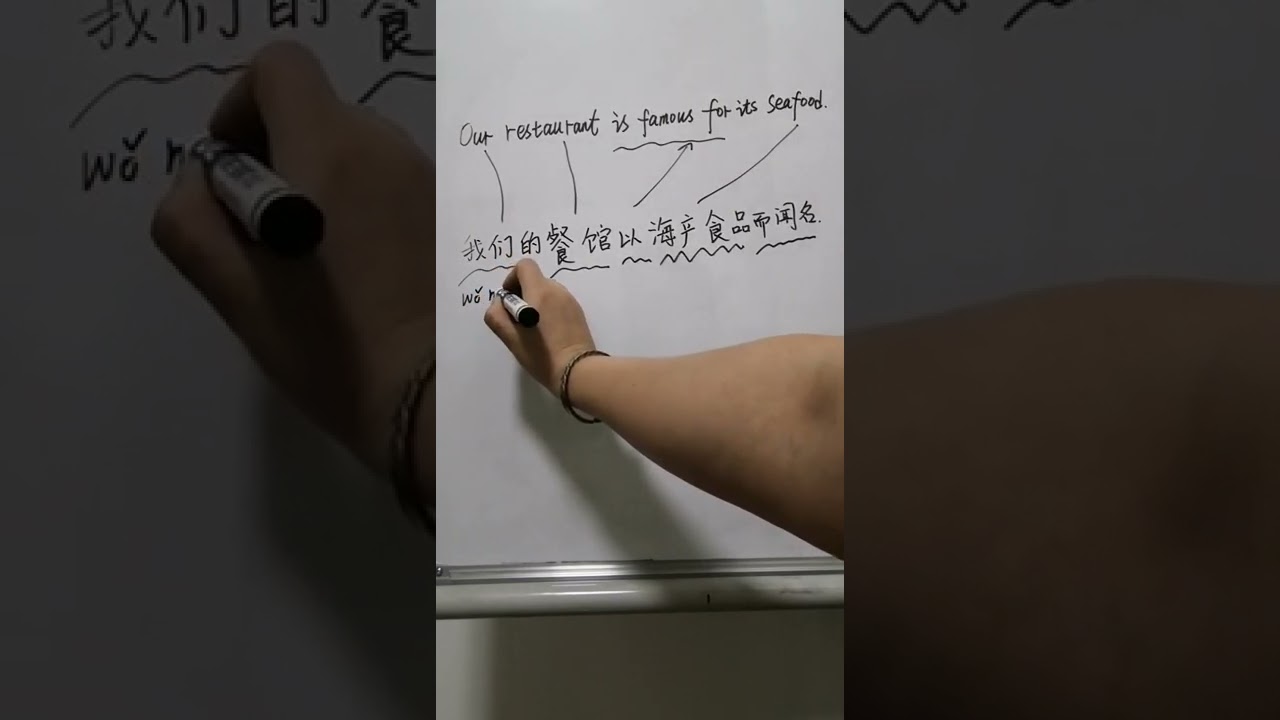 Our restaurant is famous for its seafood.
我们的餐馆以海产食品而闻名.
wǒ